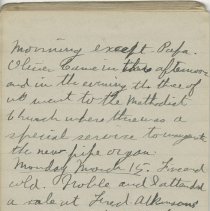 morning except Papa.
Oliver came in this afternoon
and in the evening the three of
us went to the Methodist
Church where there was a
special service to inaugurate
the new pipe organ.
Monday March 15. Fine and
cold. Noble and I attended
a sale at Fred Atkinsons